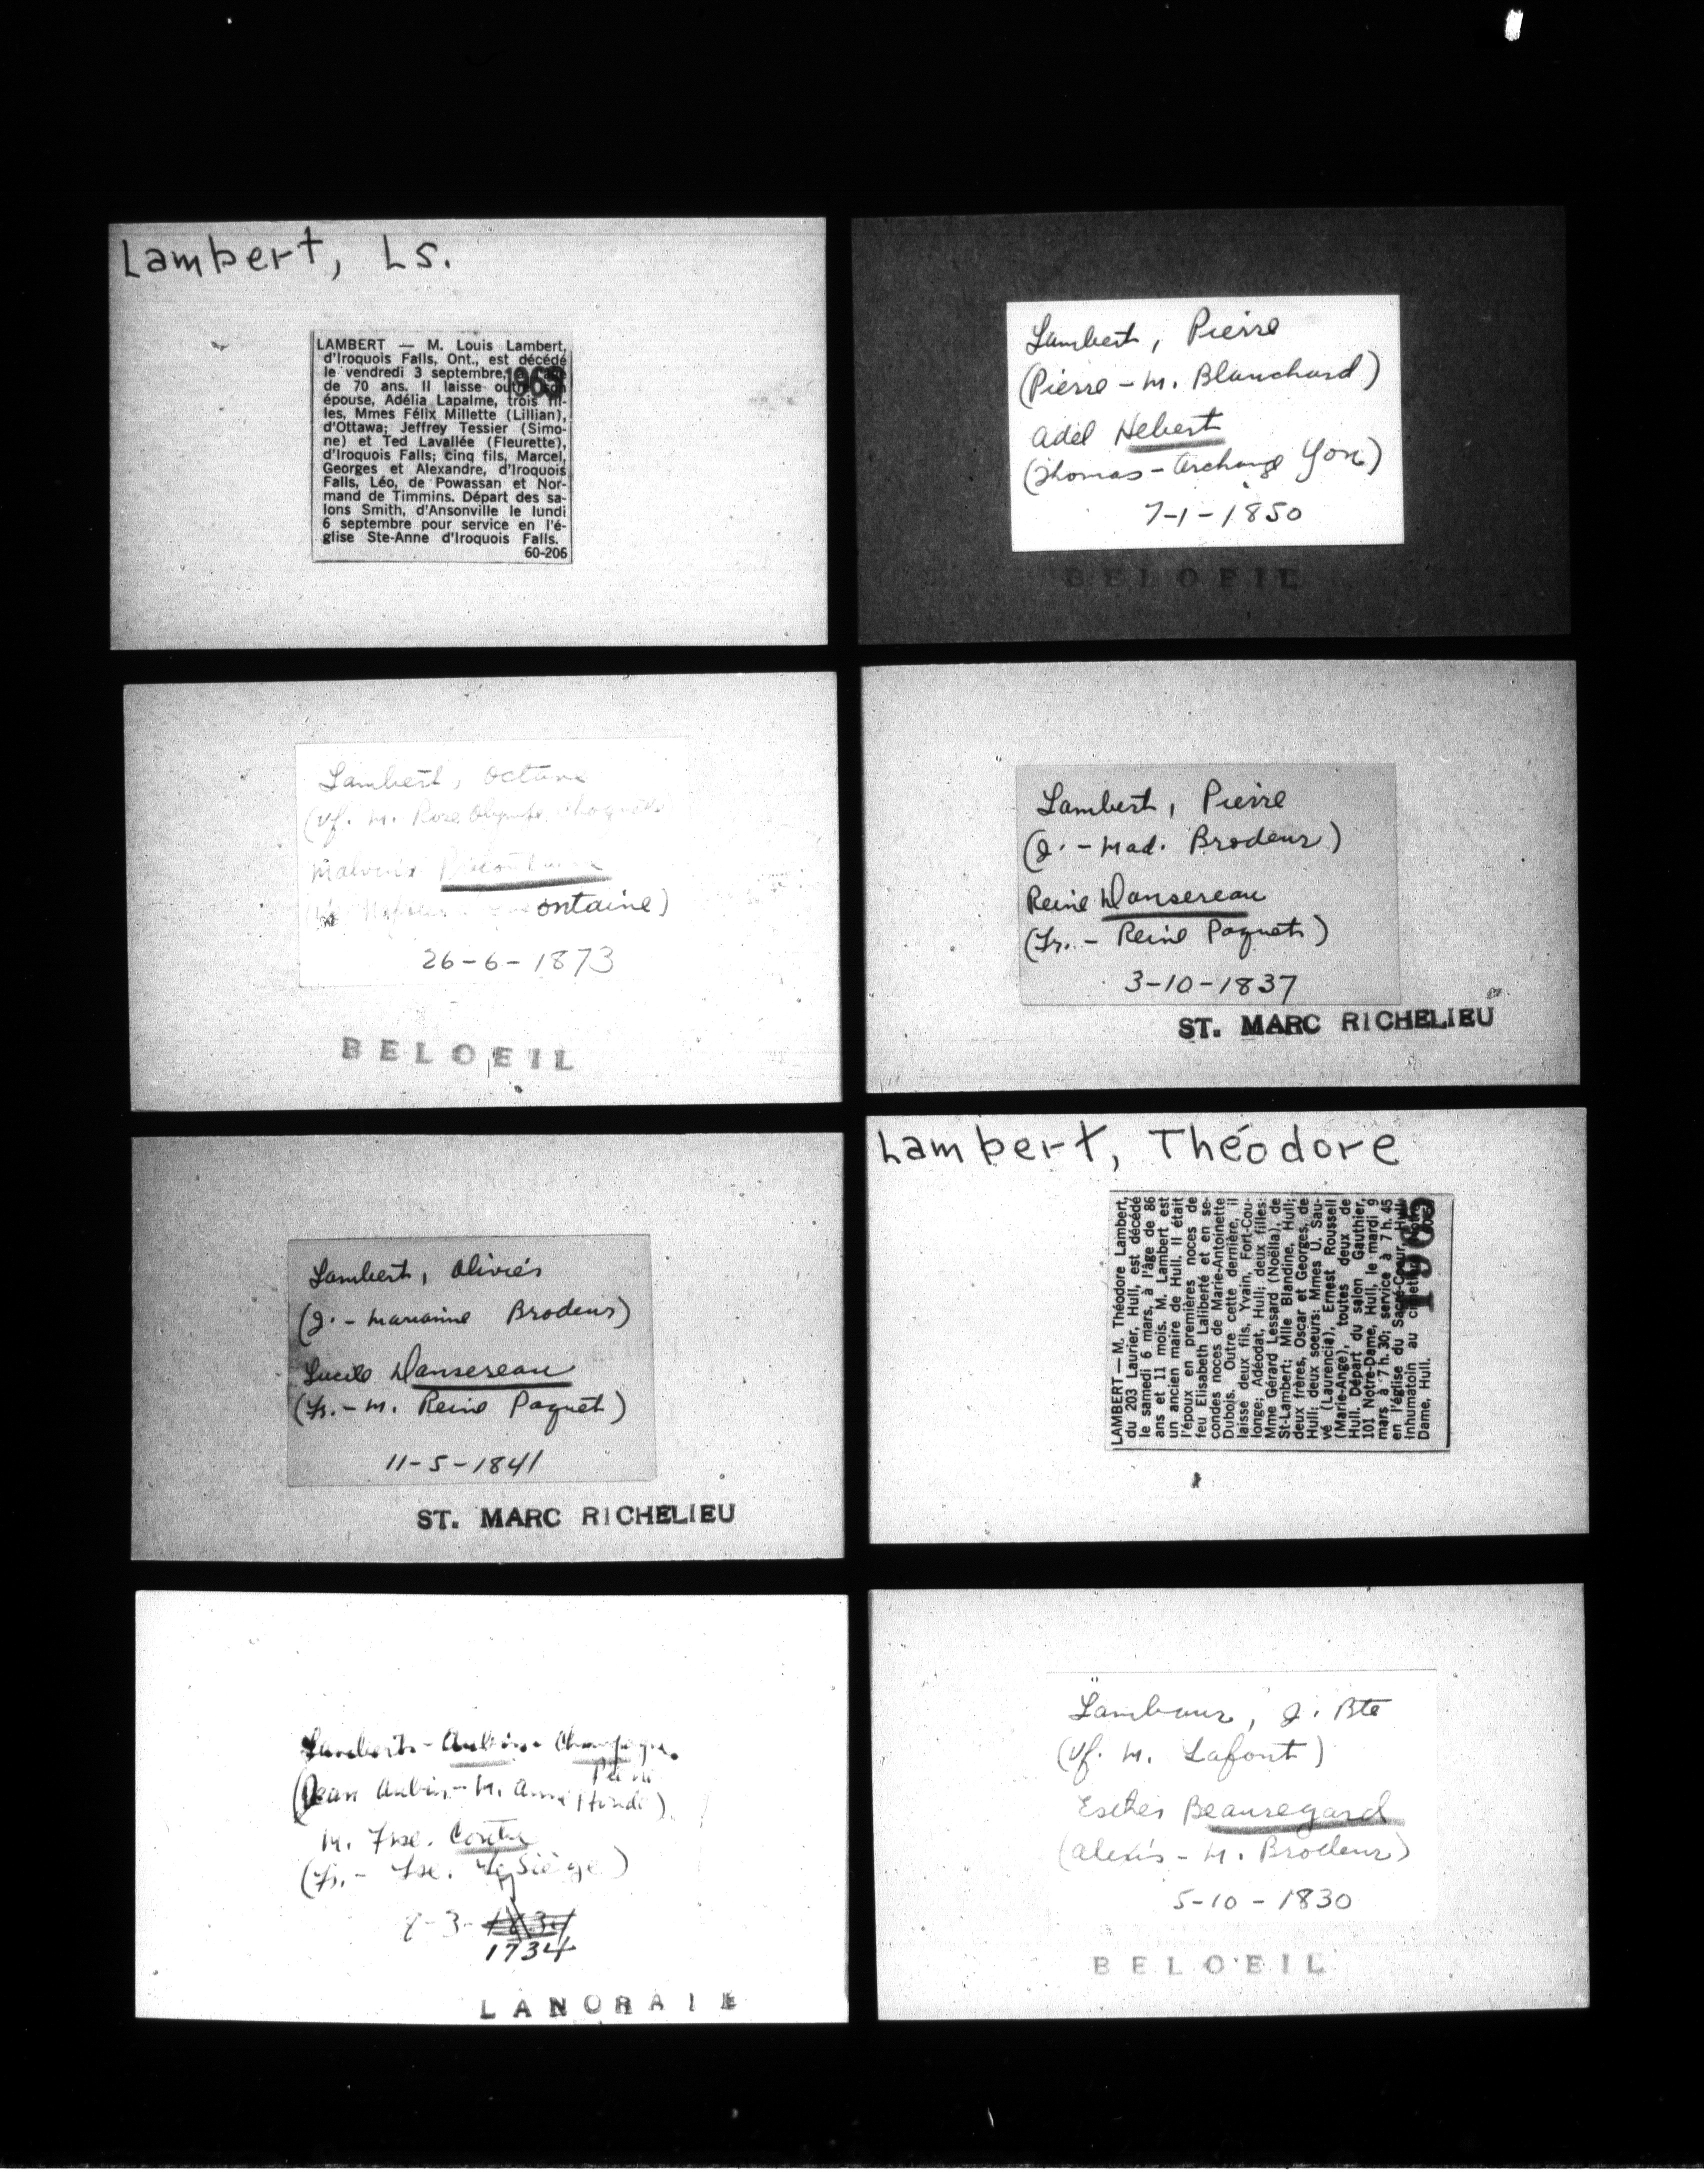 Lambert, Ls.
LAMBERT — M. Louis Lambert,
d'Iroquois Falls, Ont., est décédé
le vendredi 3 septembre,
de 70 ans. Il laisse outre son
épouse, Adélia Lapalme, trois fil-
les, Mmes Félix Millette (Lillian),
d'Ottawa; Jeffrey Tessier (Simo-
ne) et Ted Lavallée (Fleurette),
d'Iroquois Falls; cinq fils, Marcel,
Georges et Alexandre, d'Iroquois
Falls, Léo, de Powassan et Nor-
mand de Timmins. Départ des sa-
lons Smith, d'Ansonville le lundi
6 septembre pour service en l'é-
glise Ste-Anne d'Iroquois Falls.
60-206
Lambert, Pierre
(Pierre - M. Blanchard)
Adél Hebert
(Thomas - Archange Yon)
7-1-1850
BELOEIL
Lambert, Octave
(Vf. M. Rose
Malvina
ontaine)
26-6-1873
BELOEIL
Lambert, Pierre
(J. - Mad. Brodeur)
Reine Dansereau
(Fr. - Reine Paquet)
3-10-1837
ST. MARC RICHELIEU
Lambert, Olivier
(J. - Marianne Brodeur)
Lucile Dansereau
(Fr. - M. Reine Paquet)
11-5-1841
ST. MARC RICHELIEU
Lambert, Théodore
LAMBERT — M. Théodore Lambert,
du 203 Laurier, Hull, est décédé
le samedi 6 mars, à l'âge de 86
ans et 11 mois. M. Lambert est
un ancien maire de Hull. Il était
l'époux en premières noces de
feu Elisabeth Laliberté et en se-
condes noces de Marie-Antoinette
Dubois. Outre cette dernière, il
laisse deux fils, Yvain, Fort-Cou-
longe; Adéodat, Hull; deux filles:
Mme Gérard Lessard (Noëlla), de
St-Lambert; Mlle Blandine, Hull;
deux frères, Oscar et Georges, de
Hull; deux soeurs: Mmes U. Sau-
vé (Laurencia), Ernest Roussell
(Marie-Ange), toutes deux de
Hull. Départ du salon Gauthier,
101 Notre-Dame, Hull, le mardi 9
mars à 7 h. 30; service à 7 h. 45
en l'église du Sacré-Coeur, Hull,
inhumatoin au cimetière
Dame, Hull.
1965
Lambert - Aubin - Champagne
(Jean Aubin - M. Anne
M. Frse.
(Fr. - Fse. LeSiège)
8-3-
1734
LANORAIE
Lambeur, J. Bte
(Vf. M. Lafont)
Esther Beauregard
(Alexis - M. Brodeur)
5-10-1830
BELOEIL